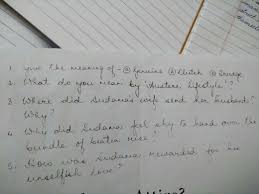 1. Give the meaning of - ⓐ Genuine ⓑ Clutch ⓒ
2. What do you mean by 'Austere lifestyle'?
3. Where did Sudama's wife send her husband?
Why?
4. Why did Sudama feel shy to hand over the
bundle of beaten rice?
5. How was Sudama rewarded for his
unselfish love?